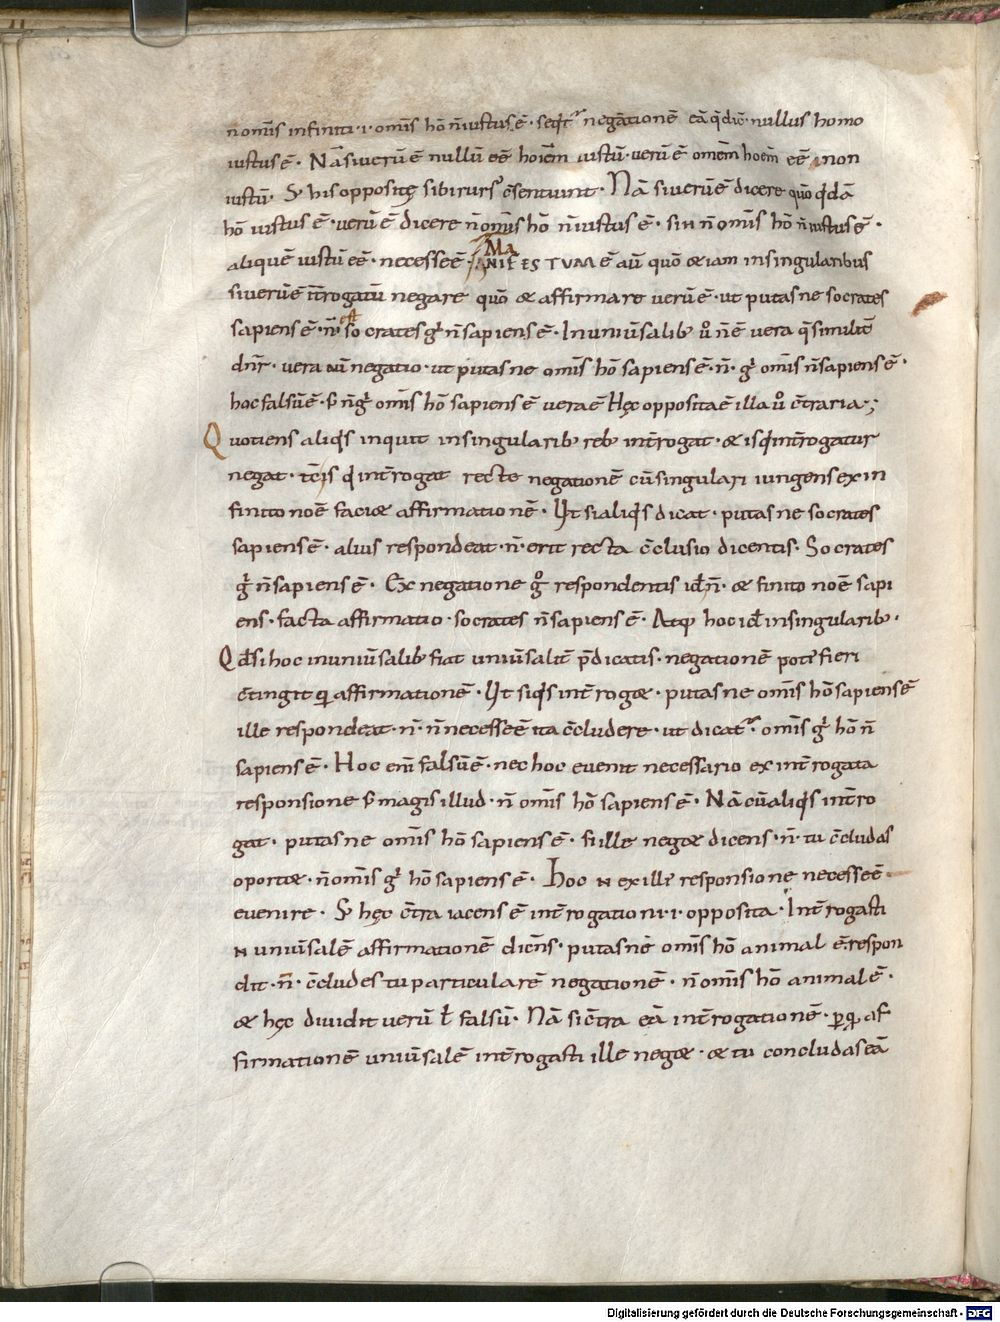 n̄ omīs infinita ·i· omīs hō n̄ iustus ē · seqt̃ negationē eā q̄ dic̄ · nullus homo
iustus ē · Nā si uerū ē nullū eē hoiem̄ iustū · uerū ē omem̄ hoem̄ eē non
iustū · S; his oppositę sibi rursꝰ c̄sentiunt · Nā si uerū ē dicere quō q̄dā
hō iustus ē · uerū ē dicere n̄ omīs hō n̄ iustus ē · sin n̄ omīs hō n̄ iustus ē ·
aliquē iustū eē · necesse ē · MaNIFESTUM ē aūt quō & iam in singularibus
si uerū ē int̄rogatū negare quō & affirmare uerū ē · ut putasne socrates
sapiens ē · n̄ est socrates gͥ n̄ sapiens ē · In uniuersalib; uͦ n̄ ē uera q̄ similit̄
dn̄r · uera uͦ negatio · ut putasne omīs hō sapiens ē · n̄ · gͥ omīs n̄ sapiens ē ·
hoc falsū ē · s; n̄ gͥ omīs hō sapiens ē uera ē Hęc opposita ē illa uͦ c̄traria ;
Quotiens aliq̄s inquit in singularib; reb; int̄rogat · & is q̄ int̄rogatur
negat · is q̄ int̄rogat recte negationē cū singulari iungens ex in
finito noē faciet affirmationē · Ut si aliq̄s dicat · putasne socrates
sapiens ē · alius respondeat · n̄ · erit recta c̄clusio dicentis · Socrates
gͥ n̄ sapiens ē · Ex negatione gͦ respondentis id ē n̄ · & finito noē sapi
ens · facta affirmatio · socrates n̄ sapiens ē · Atq; hoc id̄ in singularib; ·
Qd̄ si hoc in uniuersalib; fiat uniuersalit̄ p̄dicatis · negationē pot̄ fieri
c̄tingit ꝑ affirmationē · Ut siq̄s int̄roget · putasne omīs hō sapiens ē
ille respondeat · n̄ · n̄ necesse ē ita c̄cludere · ut dicat̃ · omīs gͥ hō n̄
sapiens ē · Hoc enī falsū ē · nec hoc euenit necessario ex int̄rogata
responsione s; magis illud · n̄ omīs hō sapiens ē · Nā cū aliq̄s int̄ro
gat · putasne omīs hō sapiens ē · si ille neget dicens · n̄ · tu c̄cludas
oportet · n̄ omīs gͥ hō sapiens ē · Hoc N ex ille responsione necesse ē ·
euenire · S; hęc c̄tra iacens ē int̄rogationi ·i· opposita · Int̄rogasti
N uniuersalē affirmationē dicens · putasne omīs hō animal ē · respon
dit · n̄ · c̄cludes tu particularē negationē · n̄ omīs hō animal ē ·
& hęc diuidit uerū ł falsū · Nā si c̄tra eā int̄rogationē · af
firmationē uniuersalē int̄rogasti ille neget · & tu concludas eā
Digitalisierung gefördert durch die Deutsche Forschungsgemeinschaft - DFG